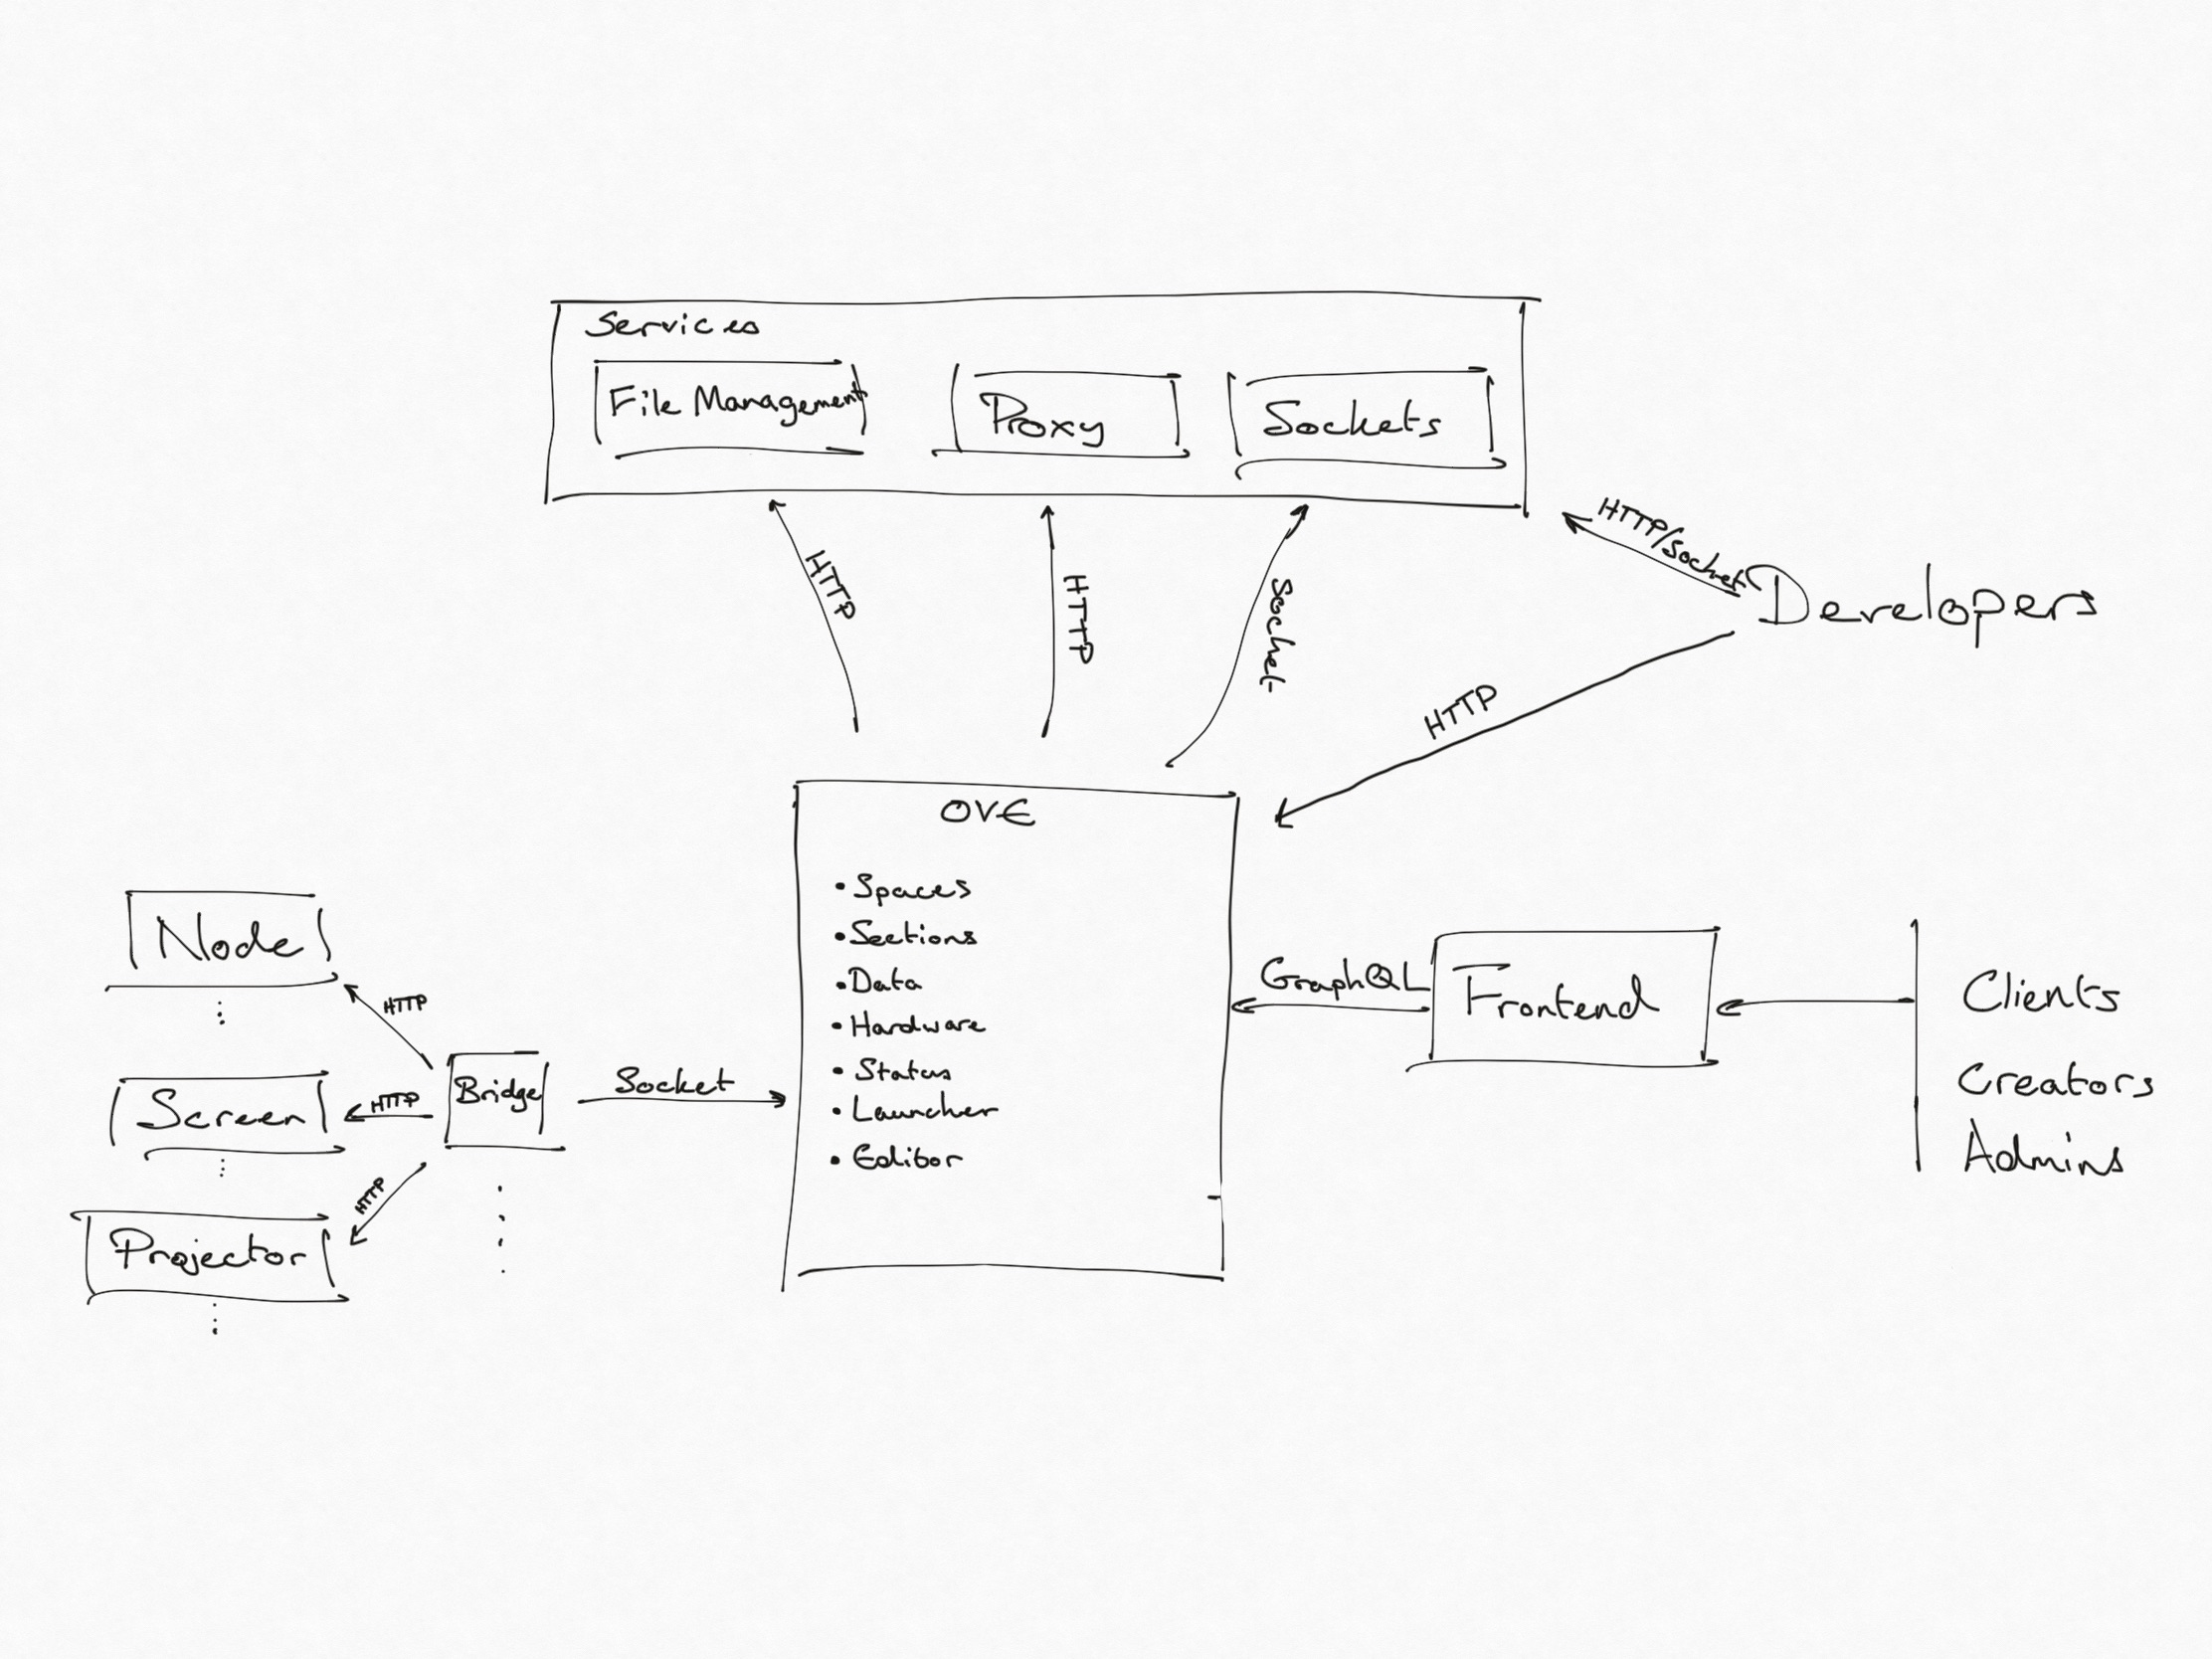 Services
File Management
Proxy
Sockets
HTTP
HTTP
Socket
HTTP/Socket
Developers
HTTP
OVE
• Spaces
• Sections
• Data
• Hardware
• Status
• Launcher
• Editor
Node
HTTP
Screen
HTTP
Bridge
Socket
Projector
HTTP
GraphQL
Frontend
Clients
Creators
Admins